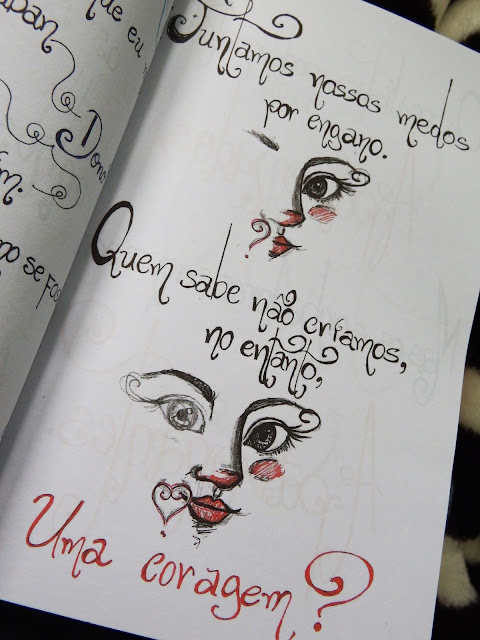 que eu
Juntamos nossos medos
por engano.
Quem sabe não críamos,
no entanto,
Uma coragem?